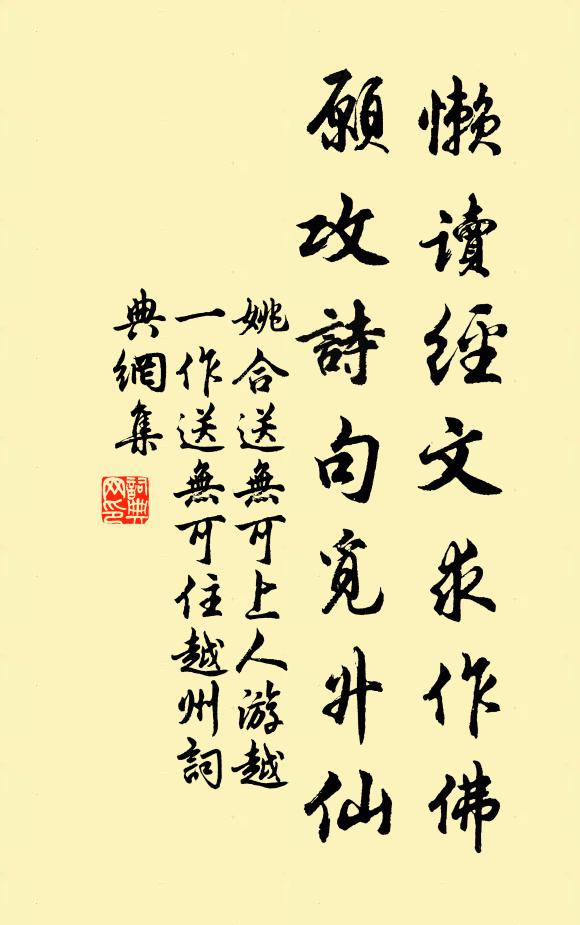 懒讀經文求作佛
願攻詩句覓升仙
姚合送無可上人游越
一作送無可住越州詞
典網集
詞典网印